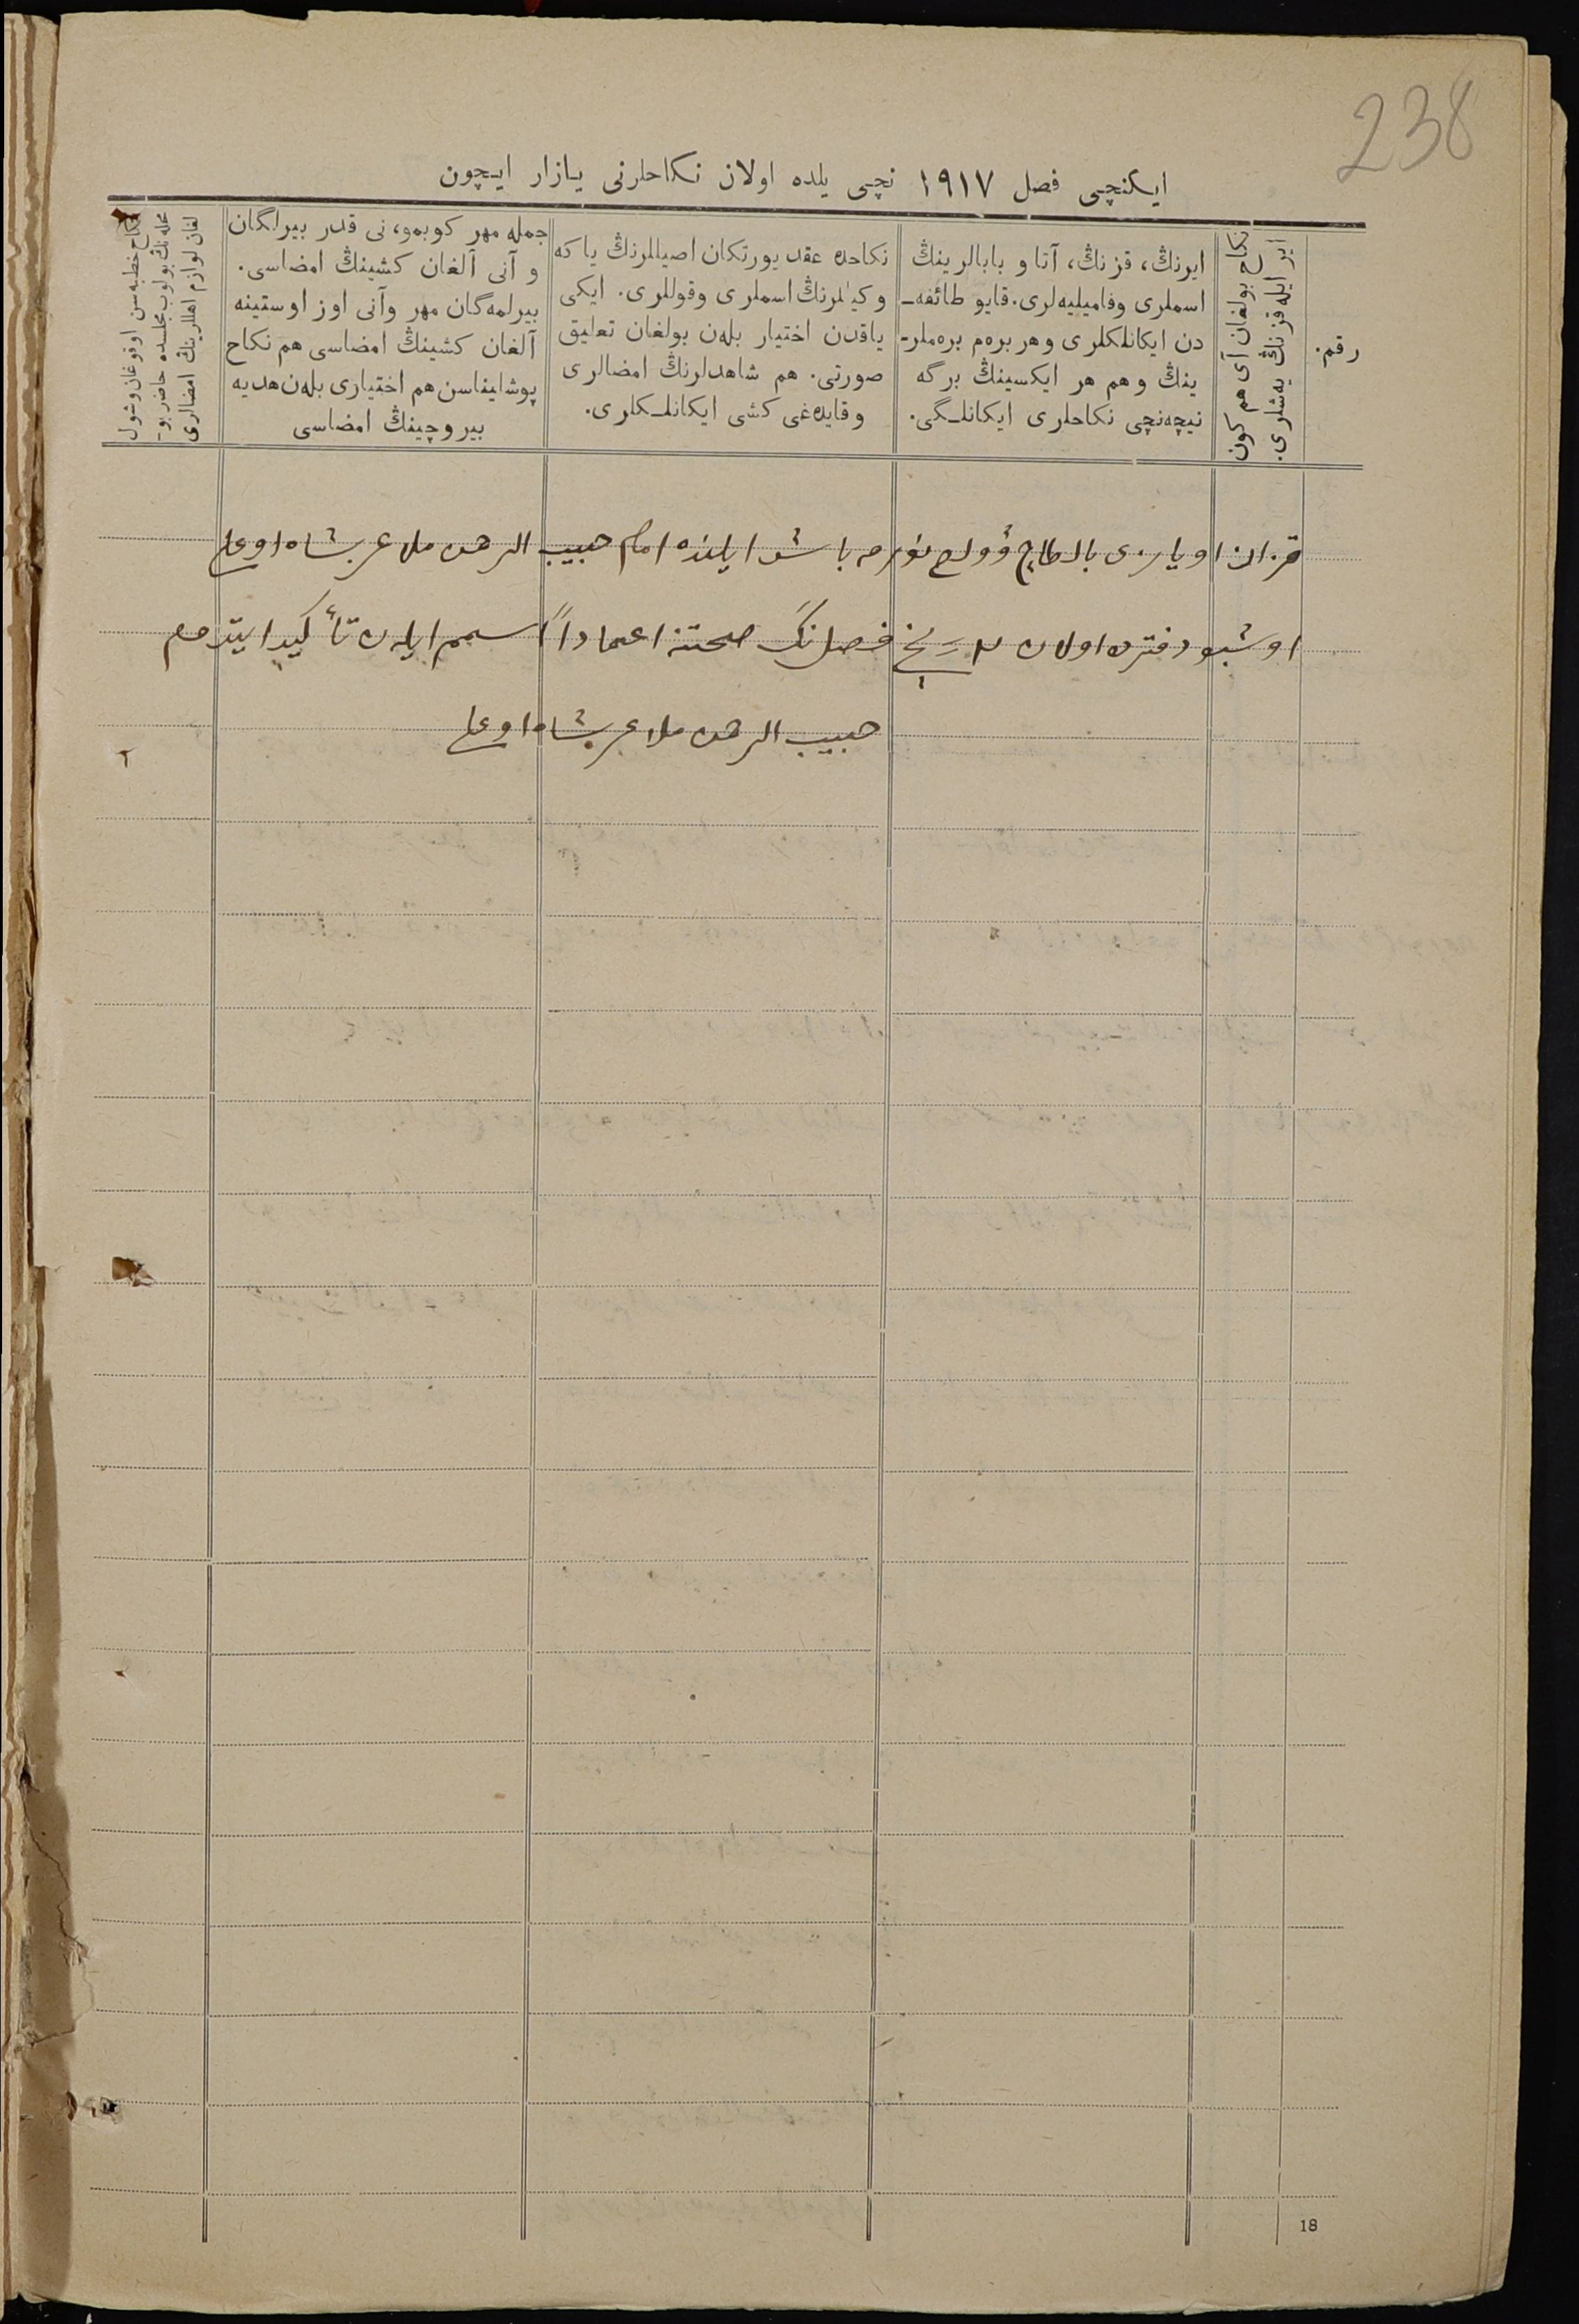 238
ایکنچی فصل ۱۹۱۷ نچی یلده اولان نکاحلرنی یازار ایچون
رقم.
نکاح بولغان آی هم کون
ایر ایله قزنڭ یه‌شلری.
ایرنڭ، قزنڭ، آتا و بابالرینڭ
اسملری وفامیلیه‌لری. قایو طائفه‌ـ
دن ایکانلکلری وهر بره‌م بره‌ملرـ
ینڭ وهم هر ایکسینڭ برگه
نیچه‌نچی نکاحلری ایکانلـگی.
نکاحده عقد یورتکان اصیللرنڭ یا که
وکیللرنڭ اسملری وقوللری. ایکی
یاقدن اختیار بلەن بولغان تعلیق
صورتی. هم شاهدلرنڭ امضالری
وقایده‌غی کشی ایکانلـکلری.
جمله مهر کوبمو، نی قدر بیرلگان
و آنی آلغان کشینڭ امضاسی.
بیرلمه‌گان مهر وآنی اوز اوستینه
آلغان کشینڭ امضاسی هم نکاح
پوشلیناسن هم اختیاری بلەن هدیه
بیروچینڭ امضاسی
نکاح خطبه‌سن اوقوغان وشول
محله‌نڭ بولوب مجلسده حاضر بوـ
لغان لوازم اهللرینڭ امضالری
قزان اویازی بالطاچ وولص نورمه باش ایلنده امام حبیب الرحمن ملا عربشاه اوغلی
اوشبو دفترده اولان ۲ نچی فصل‌نڭ صحتنه اعتمادا اسمم ایله‌ن تأکید ایتدم
حبیب الرحمن ملا عربشاه اوغلی
18